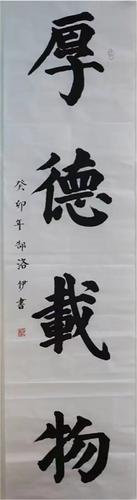 厚德載物
癸卯年郜洛伊書